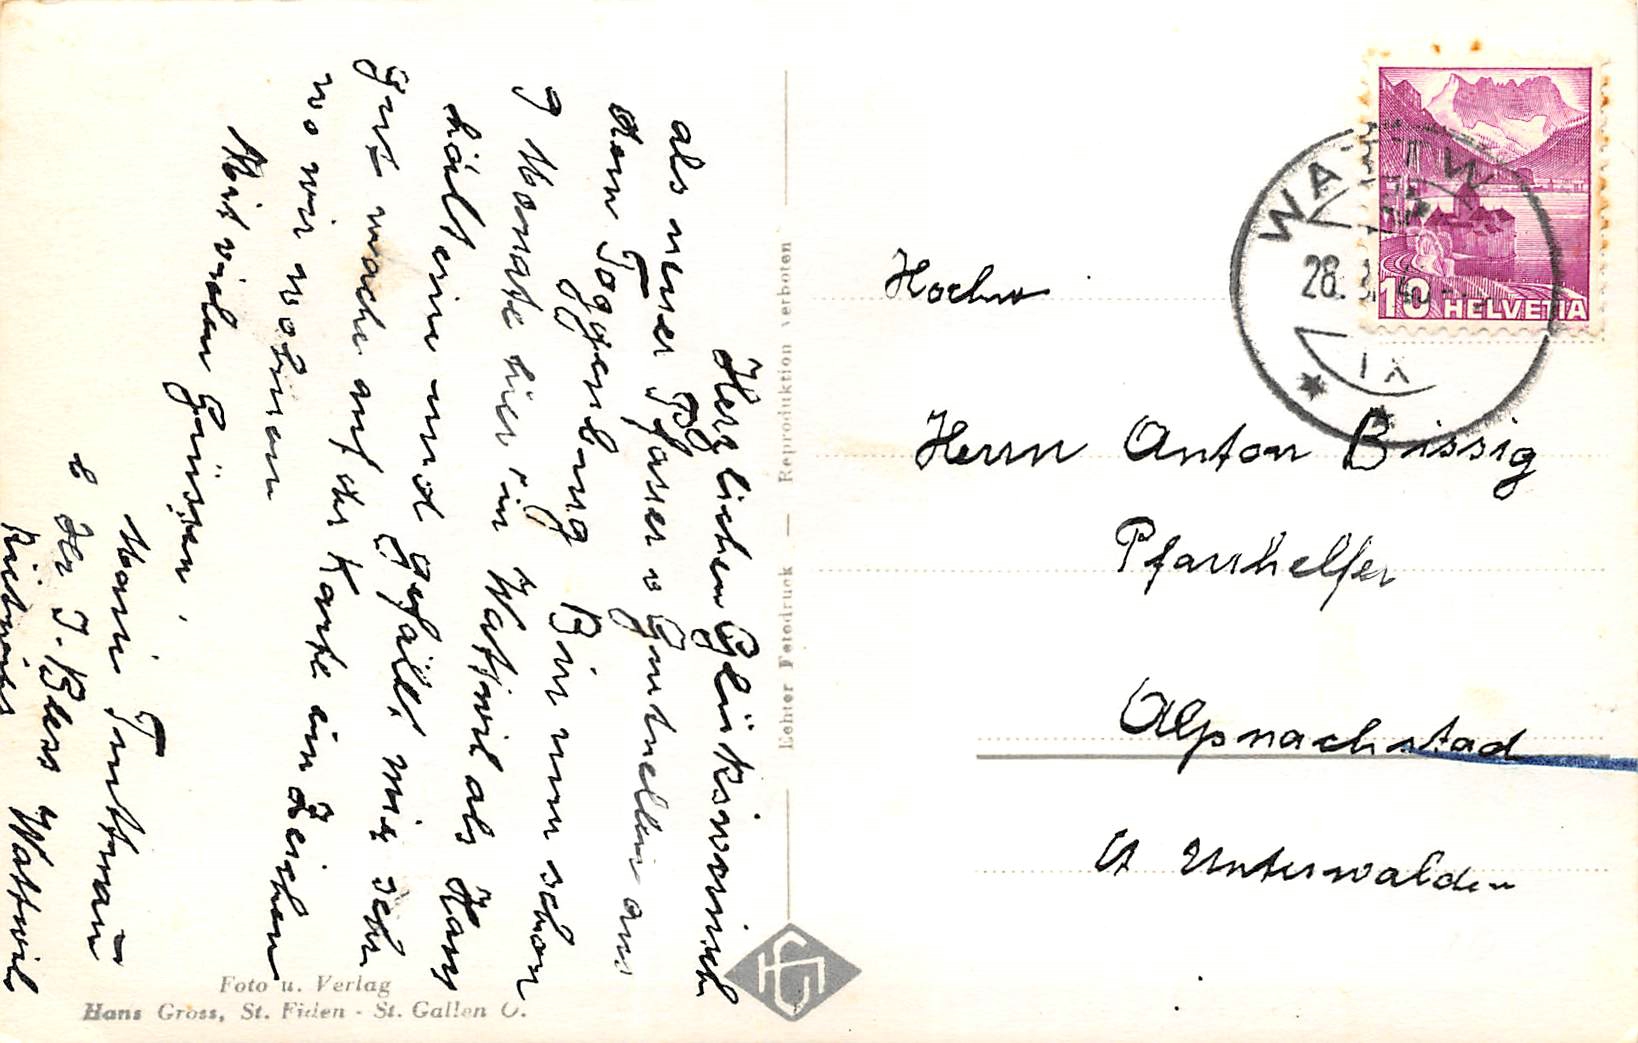 Herzlichen Glückswunsch
als neuer Pfarrer v Gurtnellen aus
dem Toggenburg Bin nun schon
7 Monate hier in Wattwil als Haus
hält erin und gefällt mir sehr
gut mache auf der Karte ein Zeichen
wo wir wohnen
Mit vielen Grüssen,
Marie
b Hr J. Bless Wattwil
Hochw
Herrn Anton Bissig
Pfarrhelfer
Alpnachstad
Kt Unterwalden
WATTW
28.
IX
10 HELVETIA
Echter Fotodruck — Reproduktion verboten
Foto u. Verlag
Hans Gross, St. Fiden - St. Gallen O.
HG